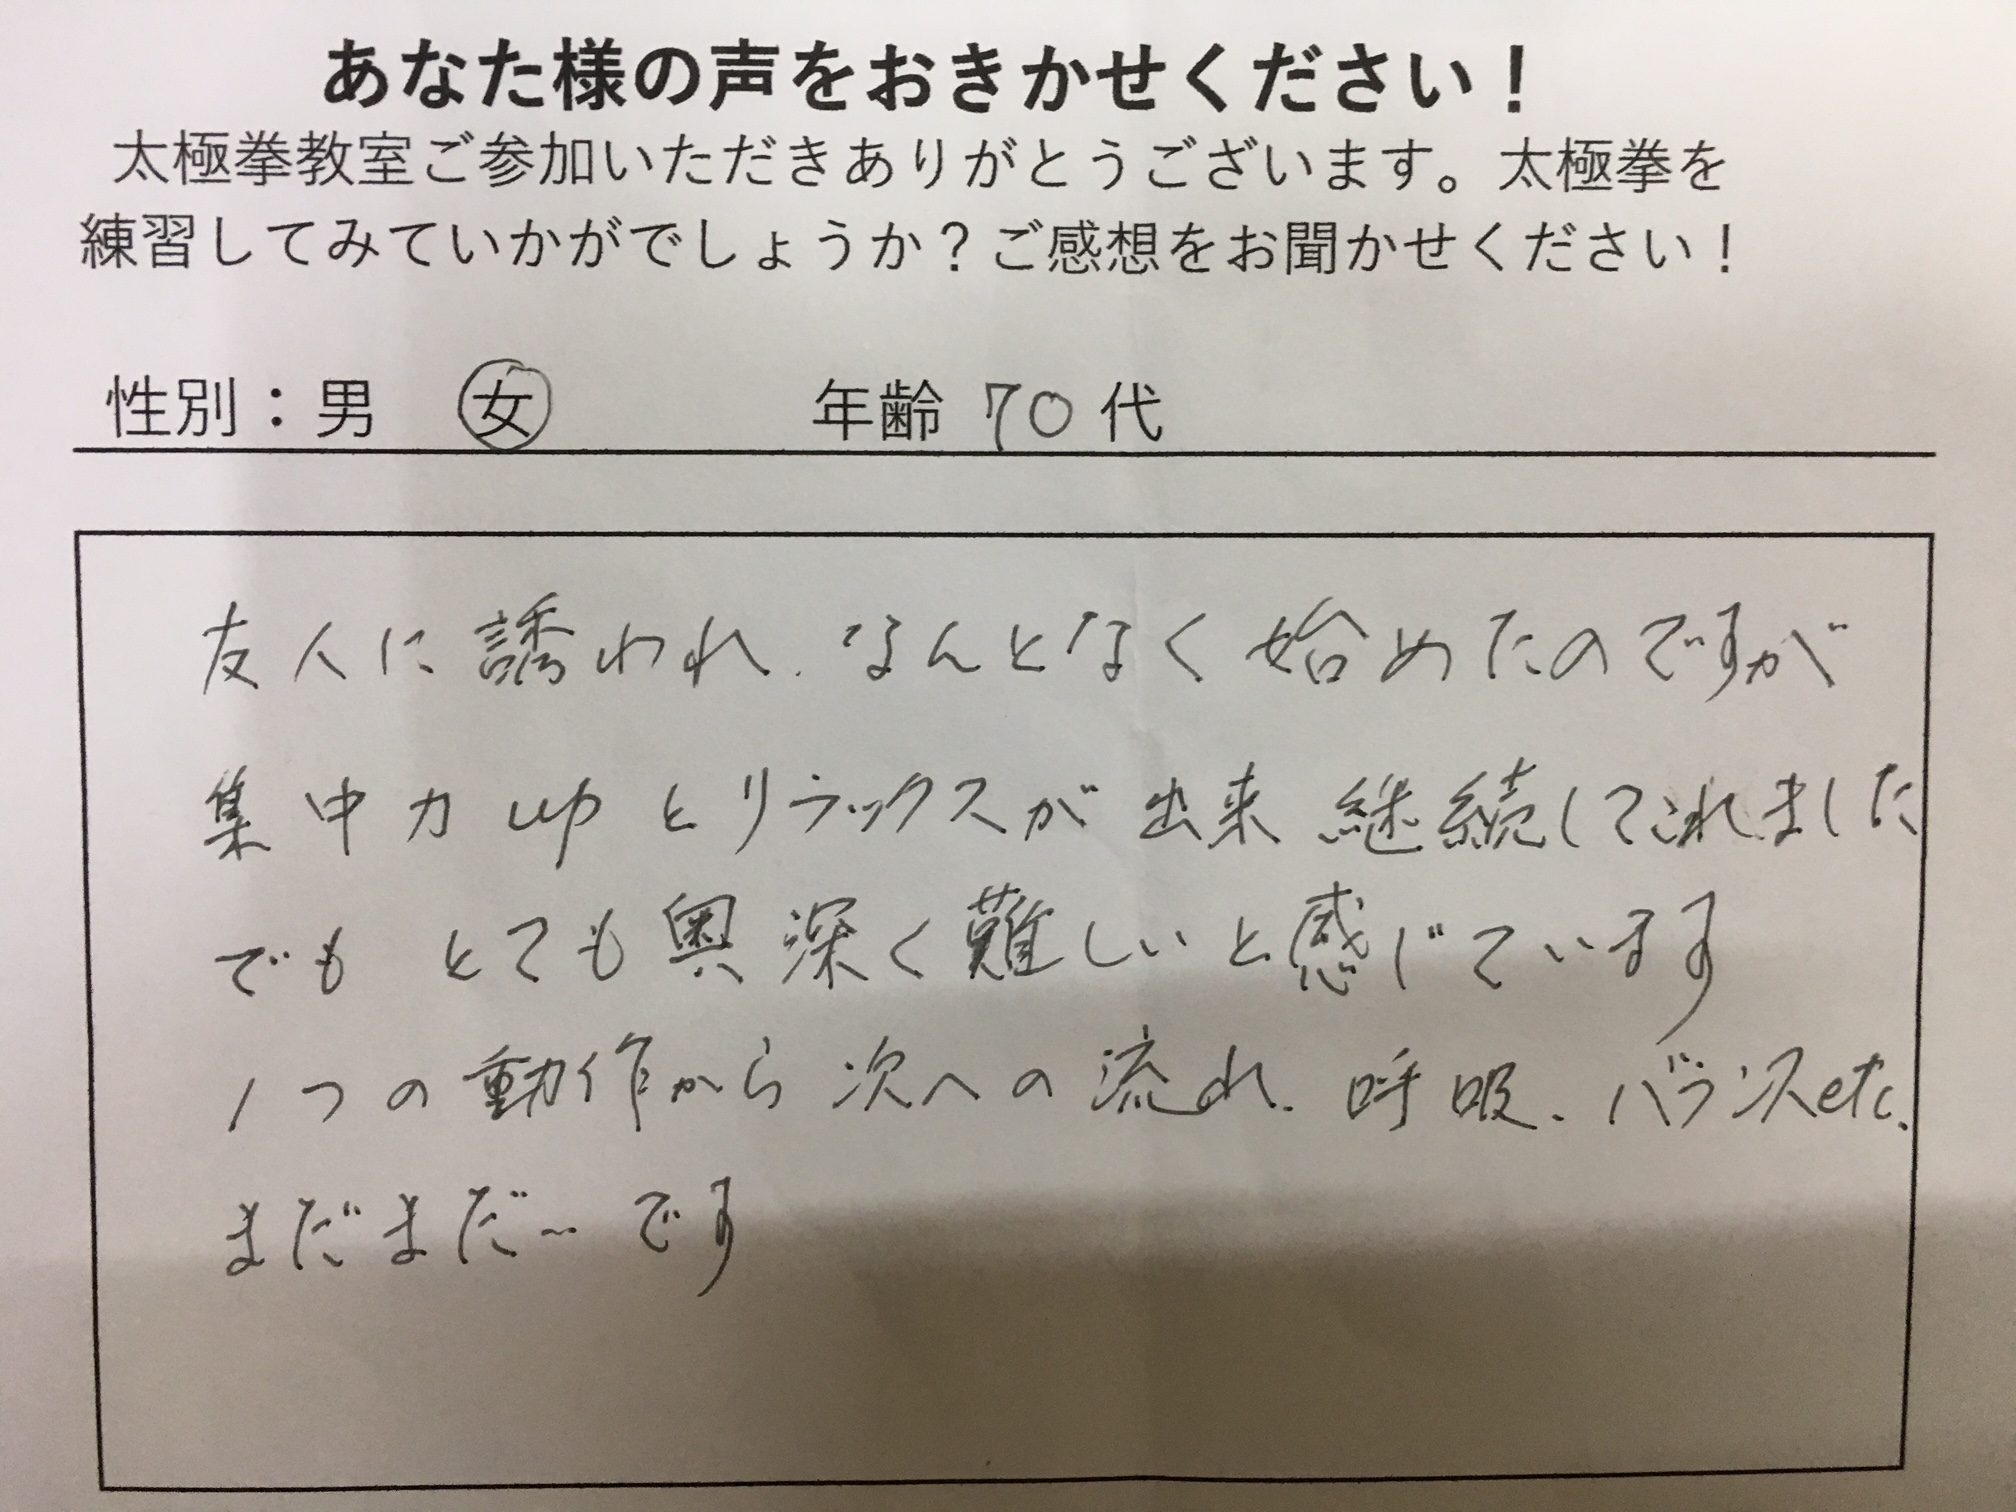 あなた様の声をおきかせください！
太極拳教室ご参加いただきありがとうございます。太極拳を
練習してみていかがでしょうか？ご感想をお聞かせください！
性別：男 女 年齢 70 代
友人に誘われ、なんとなく始めたのですが
集中力upとリラックスが出来 継続してこれました
でも とても奥深く難しいと感じています
1つの動作から次への流れ、呼吸、バランスetc.
まだまだ〜です